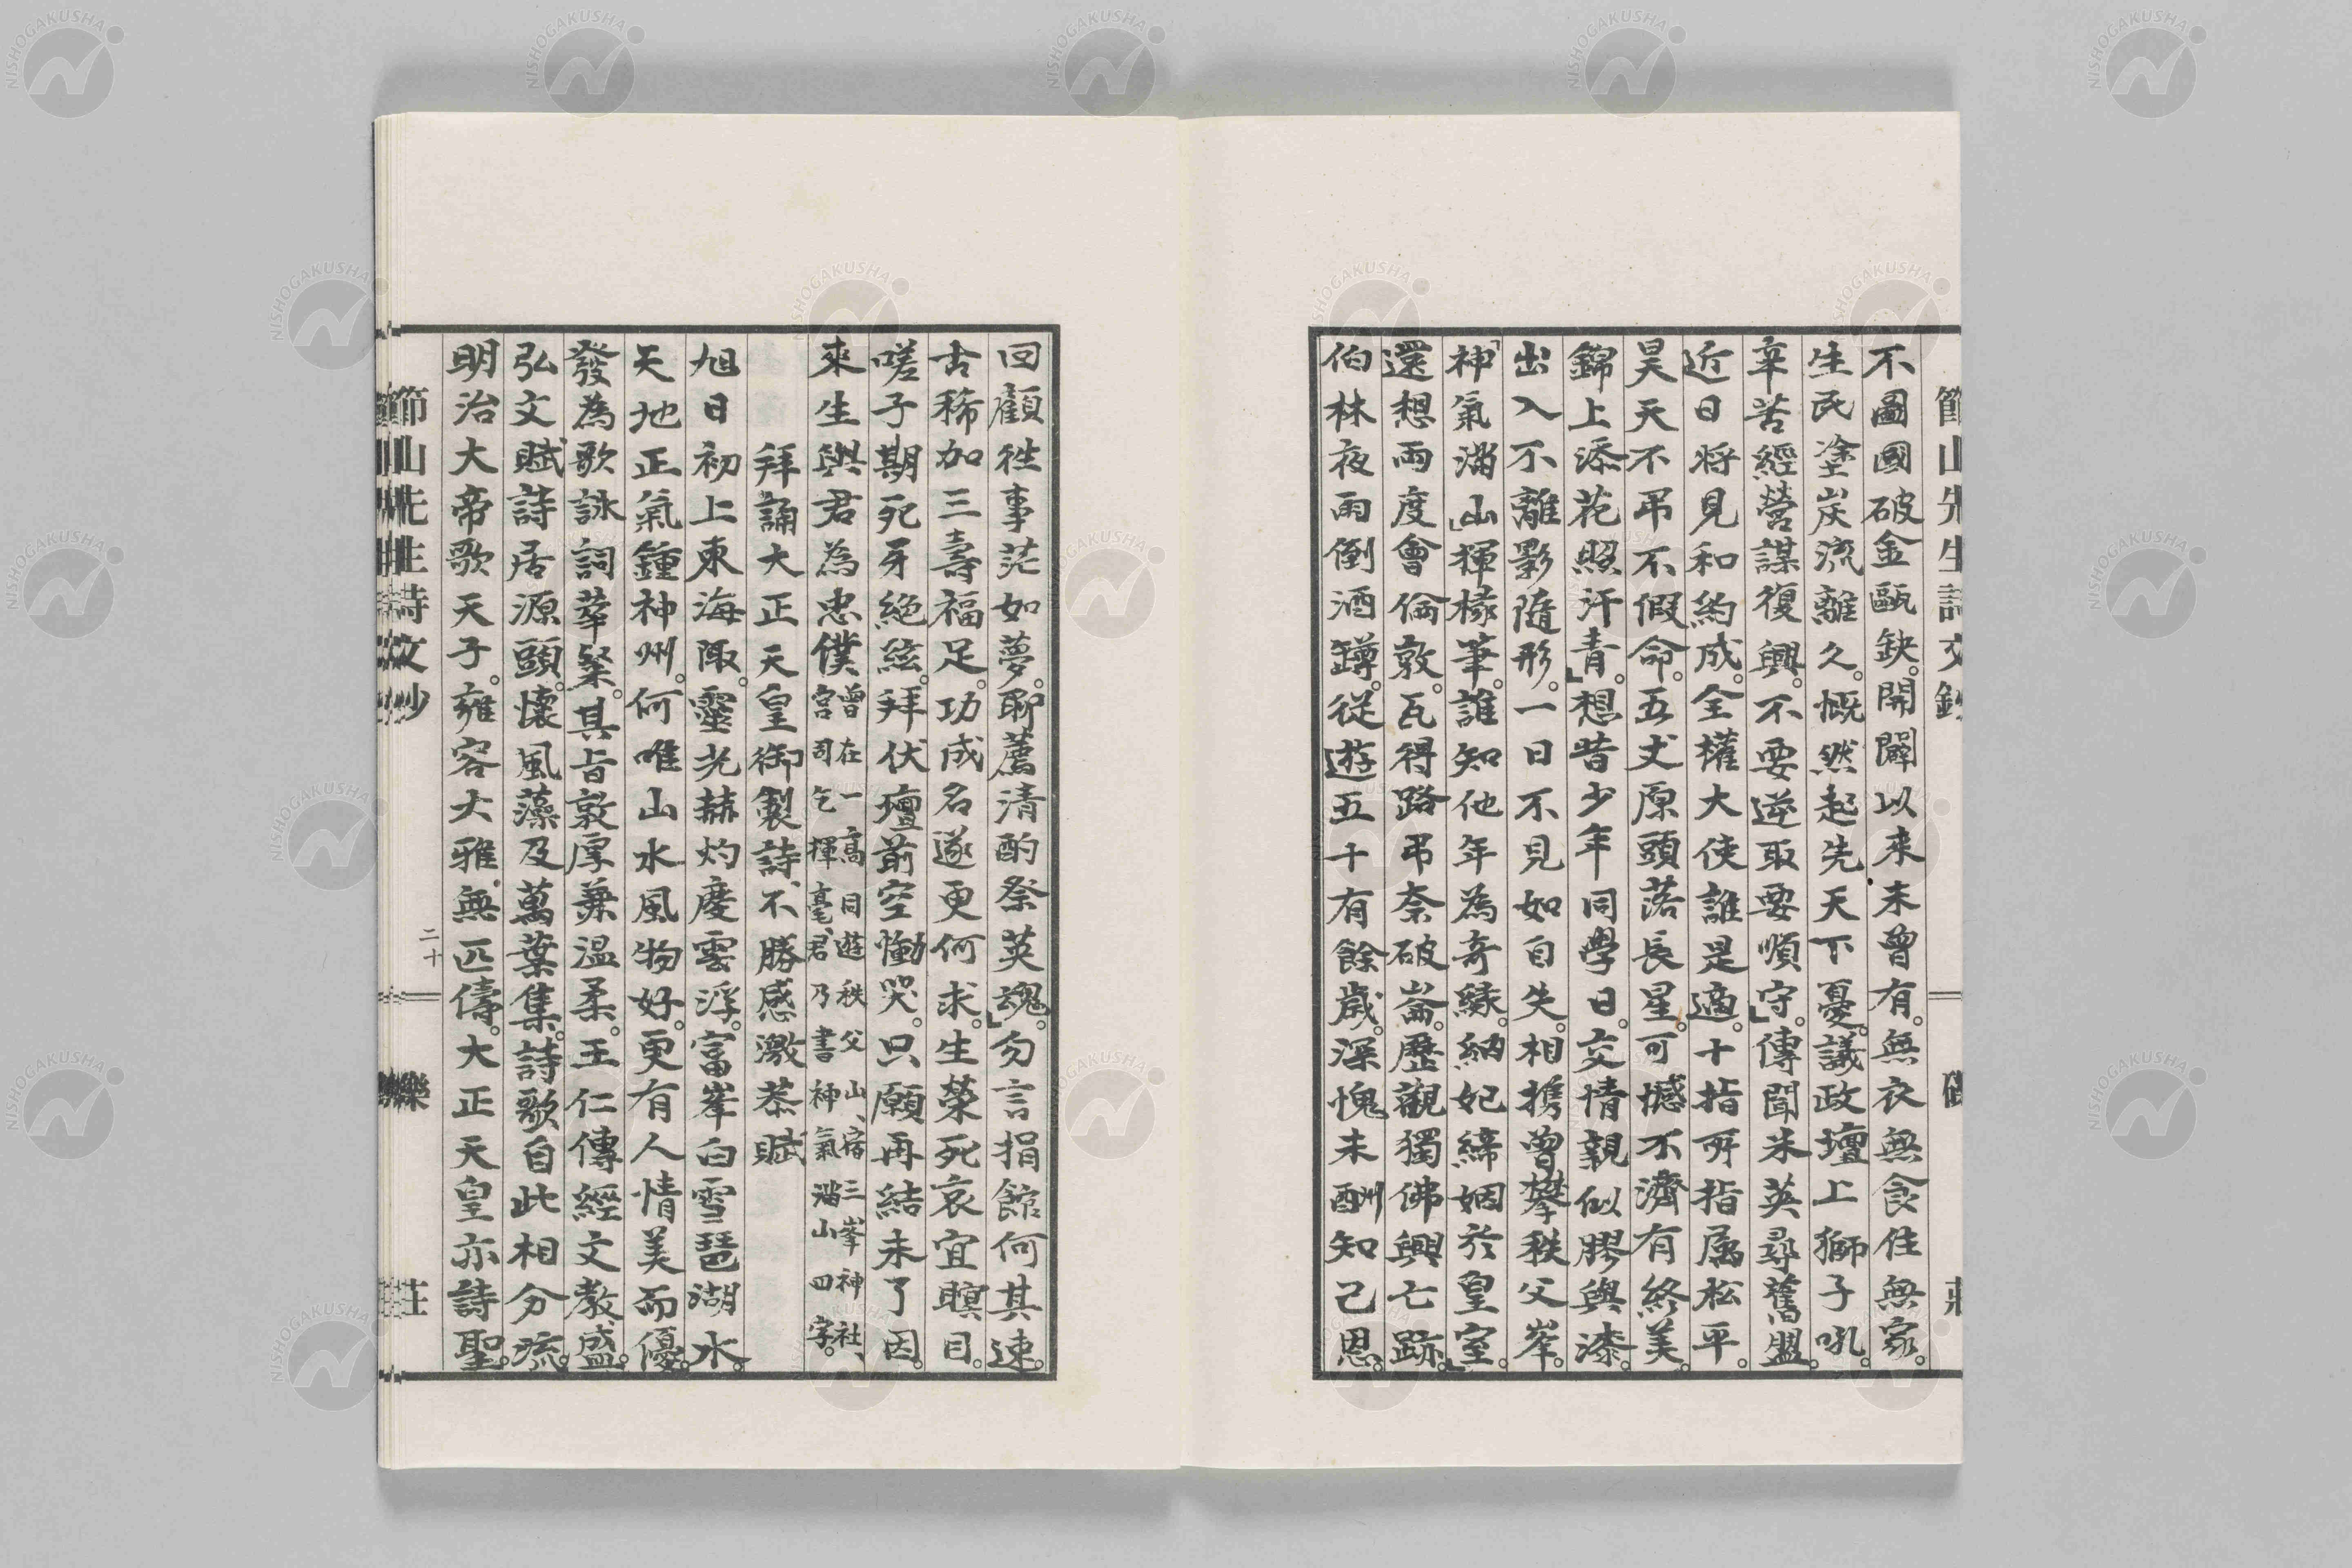 不圖國破金甌缺。開闢以來未曾有。無衣無食住無家。
生民塗炭流離久。慨然起先天下憂。議政壇上獅子吼。
辛苦經營謀復興。不要逆取要順守。」傳聞米英尋舊盟。
近日將見和約成。全權大使誰是適。十指所指属松平。
昊天不弔不假命。五丈原頭落長星。可憾不濟有終美。
錦上添花照汗青。」想昔少年同學日。交情親似膠與漆。
出入不離影隨形。一日不見如自失。相携曾攀秩父峯。
「神氣滿山」揮椽筆。誰知他年為奇縁。納妃締姻於皇室。
還想兩度會倫敦。瓦得路弔奈破崙。歴觀獨佛興亡跡。」
伯林夜雨倒酒蹲。從遊五十有餘歳。深愧未酬知己恩。
回顧徃事茫如夢。聊薦清酌祭英魂。」勿言捐館何其速。
古稀加三壽福足。功成名遂更何求。生榮死哀宜瞑目。
嗟子期死牙絶絃。拜伏壇前空慟哭。只願再結未了因。
來生與君為忠僕
曽在一高日遊秩父山、宿三峯神社、
宮司乞揮毫、君乃書神氣滿山四字。
拜誦大正天皇御製詩、不勝感激恭賦
旭日初上東海陬。靈光赫灼慶雲浮。富峯白雪琵湖水。
天地正氣鍾神州。何唯山水風物好。更有人情美而優。
發為歌詠詞華粲。其旨敦厚兼温柔。王仁傳經文教盛。
弘文賦詩居源頭。懷風藻及萬葉集。詩歌自此相分流。
明治大帝歌天子。雍容大雅無匹儔。大正天皇亦詩聖。
節山先生詩文鈔
二十
樂
荘